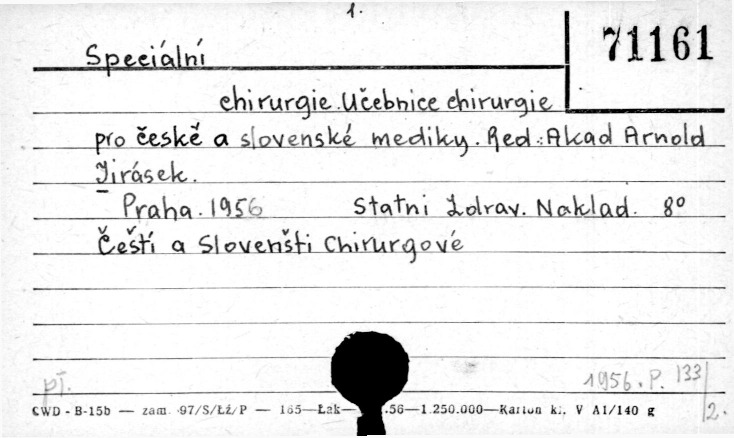 1.
71161
Speciální
chirurgie. Učebnice chirurgie
pro české a slovenské mediky. Red.: Akad Arnold
Jirásek.
Praha. 1956 Statni Zdrav. Naklad. 8°
Čeští a Slovenšti Chirurgové
př. 1956. P. 133/2.
CWD - B-15b — zam. 97/S/Łż/P — 165—Łak— .56—1.250.000—Karton kl. V A1/140 g